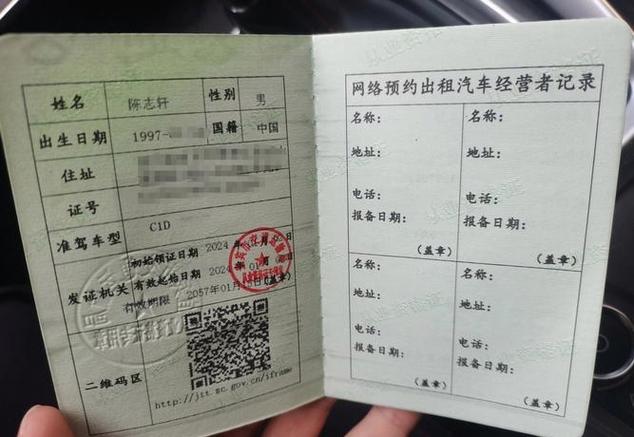 姓名 陈志轩 性别 男
出生日期 1997- 国籍 中国
住址
证号
准驾车型 C1D
发证机关
初始领证日期 2024年
有效起始日期 2024年01月
有效期限 2057年01月
(盖章)
二维码区
http://jtt.sc.gov.cn/iframe
网络预约出租汽车经营者记录
名称: 名称:
地址: 地址:
电话: 电话:
报备日期: 报备日期:
(盖章) (盖章)
名称: 名称:
地址: 地址:
电话: 电话:
报备日期: 报备日期:
(盖章) (盖章)